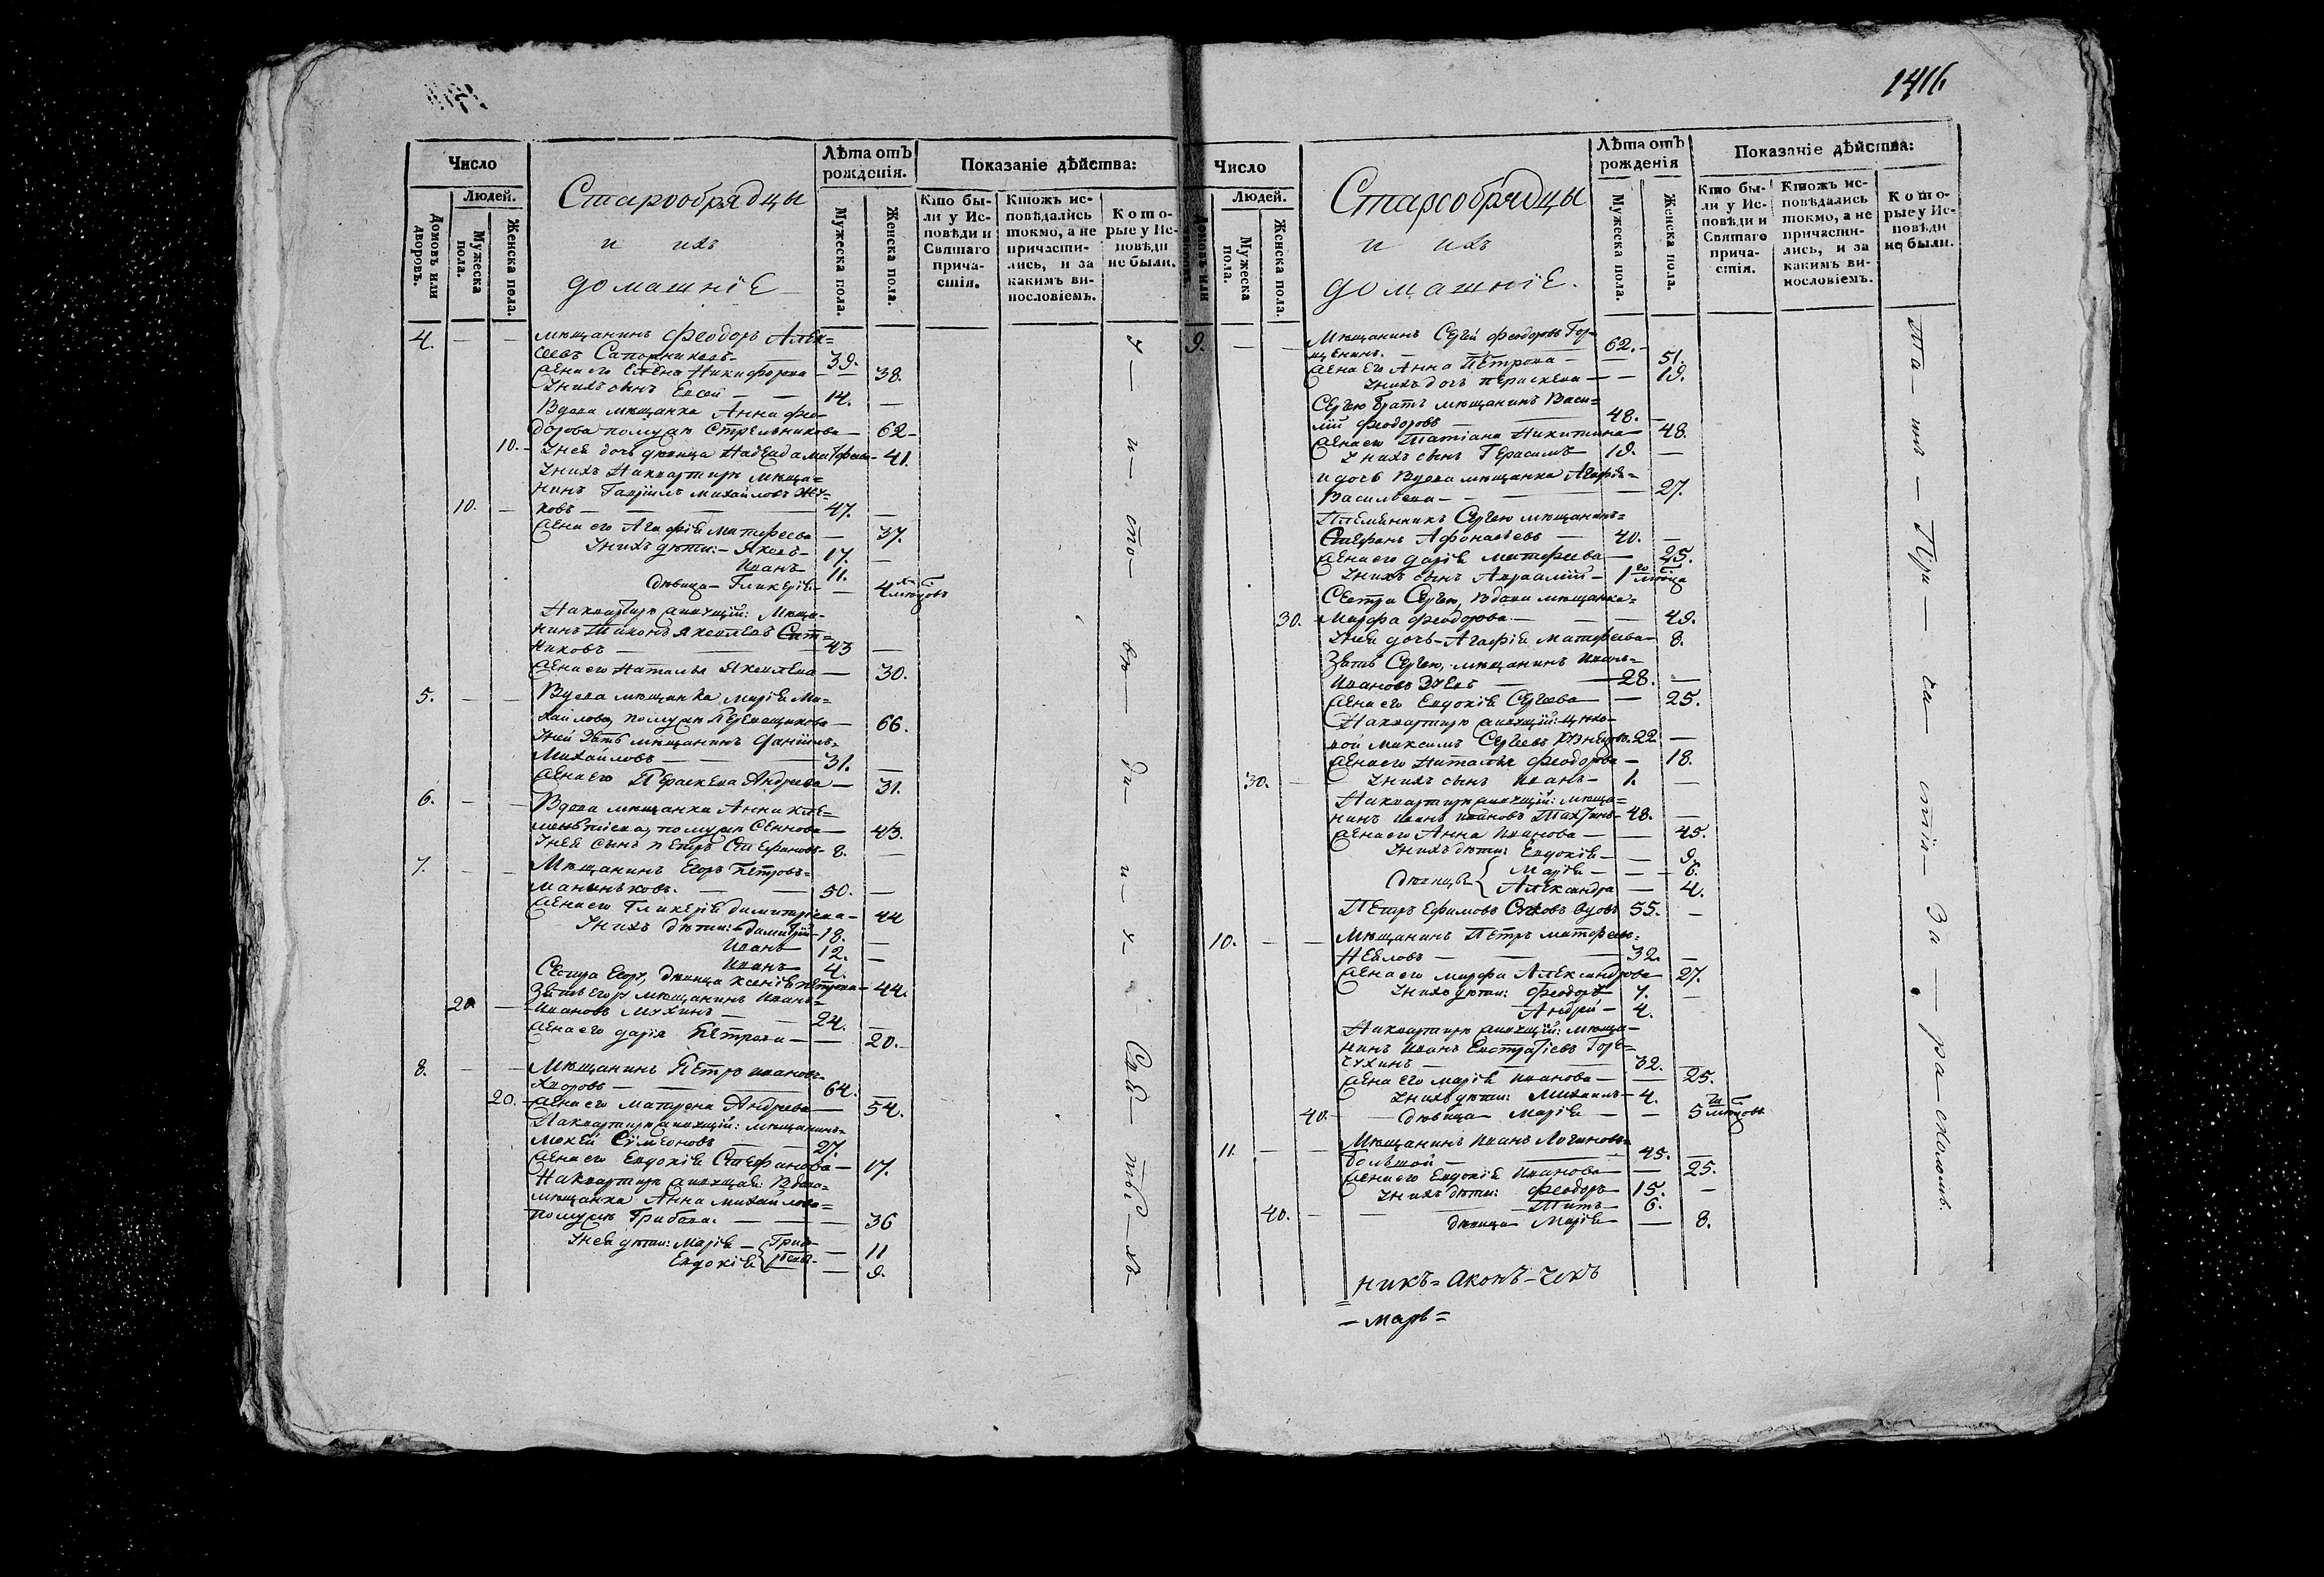 1416
Число
Людей.
Домовъ или дворовъ.
Мужеска пола.
Женска пола.
Старообрядцы
и ихъ
домашніе
Лѣта отъ рожденія.
Мужеска пола.
Женска пола.
Показаніе дѣйства:
Кто бы-
ли у Ис-
повѣди и
Святаго
прича-
стія.
Ктожъ ис-
повѣдались
токмо, а не
причасти-
лись, и за
какимъ ви-
нословіемъ.
Кото-
рые у Ис-
повѣди
не были.
4. — — мѣщанинъ Феодоръ Алек=
сеевъ Сапожниковъ — 39.
жена его Елена Никифорова — 38.
У нихъ сынъ Евсей — — 14. —
Вдова мѣщанка Анна Фео-
дорова по мужѣ Стрельникова — 62 —
10. — У нея дочь девица Надежда Матфеева — 41.
У нихъ на квартирѣ мѣща=
нинъ Гавріилъ Михайловъ Жу=
10. — ковъ — — — 47. —
жена его Агафія Матфеева — 37.
У нихъ дѣти: — Яковъ — 17. —
Иванъ 11. —
дѣвица — Гликерія — — 4 мѣсцовъ
На квартирѣ живущій: мѣща-
нинъ Тихонъ Яковлевъ
никовъ — — 43 —
жена его Наталья Яковлева — 30.
5. — — Вдова мѣщанка Марія Ми=
хайлова, по мужѣ Перевощикова — 66.
У ней зять мѣщанинъ Даніилъ=
Михайловъ — — — 31. —
жена его Параскева Андреева — 31.
6. — — Вдова мѣщанка Анна Кле=
ментіева, по мужѣ Сеннова — 43.
У нея сынъ Петръ Стефановъ — 8. —
7. — — Мѣщанинъ Егоръ Петровъ=
Маниньковъ. — — 50. —
жена его Гликерія Димитріева — 44
У нихъ дѣти: Димитрій — 18. —
Иванъ 12. —
Иванъ 4.
Сестра Егору, дѣвица Ксенія Петрова — 44.
Зять Егору мѣщанинъ Иванъ=
20 — Ивановъ Мухинъ — — 24. —
жена его Дарія Петрова — — 20. —
8. — — Мѣщанинъ Петръ Ивановъ=
Хворовъ — — — 64. —
20. — жена его Матрена Андреева — 54.
На квартирѣ живущій: мѣщанинъ=
Мокей Сѵмеоновъ — — 27. —
жена его Евдокія Стефанова — 17.
На квартирѣ живущая: вдова=
мѣщанка Анна Михайлова=
по мужѣ Грибова. — — — 36
У нея дѣти: Марія — — 11
Евдокія — 9.
у — и — сто — вѣ — ди — и — у — Свя — ты — хъ
Число
Людей.
Домовъ или дворовъ.
Мужеска пола.
Женска пола.
Старообрядцы
и ихъ
домашніе.
Лѣта отъ рожденія
Мужеска пола.
Женска пола.
Показаніе дѣйства:
Кто бы-
ли у Ис-
повѣди и
Святаго
прича-
стія.
Ктожъ ис-
повѣдались
токмо, а не
причасти-
лись, и за
какимъ ви-
нословіемъ.
Кото-
рые у Ис-
повѣди
не были.
9. — — Мѣщанинъ Сергій Феодоровъ Гор=
щенинъ. — — 62. —
жена его Анна Петрова — — 51.
У нихъ дочь Параскева — — 19.
Сергію братъ мѣщанинъ Васи=
лій Феодоровъ — — 48. —
жена его Татіана Никитина — 48.
У нихъ сынъ Герасимъ — 19. —
и дочь вдова мѣщанка Агафія=
Васильева — — — 27.
Племянникъ Сергію мѣщанинъ=
Стефанъ Афонасьевъ — 40. —
жена его Дарія Матфеева — 25.
У нихъ сынъ Авраамій — 1 мѣсца
Сестра Сергію, вдова мѣщанка=
30. — Марфа Феодорова — — — 49.
У нея дочь — Агафія Матфеева — 8.
Зять Сергію, мѣщанинъ Иванъ=
Ивановъ — 28. —
жена его Евдокія Сергеева — 25.
На квартирѣ живущій: цехо-
вой Максимъ Сергеевъ Кузнецовъ 22 —
жена его Наталья Феодорова — 18.
30. — У нихъ сынъ Иванъ — 1. —
На квартирѣ живущій: мѣща=
нинъ Иванъ Ивановъ — 48. —
жена его Анна Иванова — — 45.
У нихъ дѣти: Евдокія — — 9.
дѣвицы { Марія — — 6.
Александра — 4.
Петръ Ефимовъ вдовъ 55. —
10. — — Мѣщанинъ Петръ Матфеевъ=
Невловъ — — — 32. —
жена его Марфа Александрова — 27.
У нихъ дѣти: Феодоръ — 7. —
Андрей — 4.
На квартирѣ живущій: мѣща—
нинъ Иванъ Евстратіевъ Горя=
чухинъ — — — 32. —
жена его Марія Иванова — — 25.
У нихъ дѣти: Михаилъ — 4.
40. — дѣвица — Марія — — 5 мѣсцовъ
11. — — Мѣщанинъ Иванъ Логиновъ=
Большой — — 45. —
жена его Евдокія Иванова — — 25.
У нихъ дѣти: Феодоръ — 15. —
40. — Титъ — 6.
дѣвица Марія — 8.
Та — инъ — При — ча — стія — За — ра — сколомъ.
никъ = Аконъ — чекъ
— Марѣ =